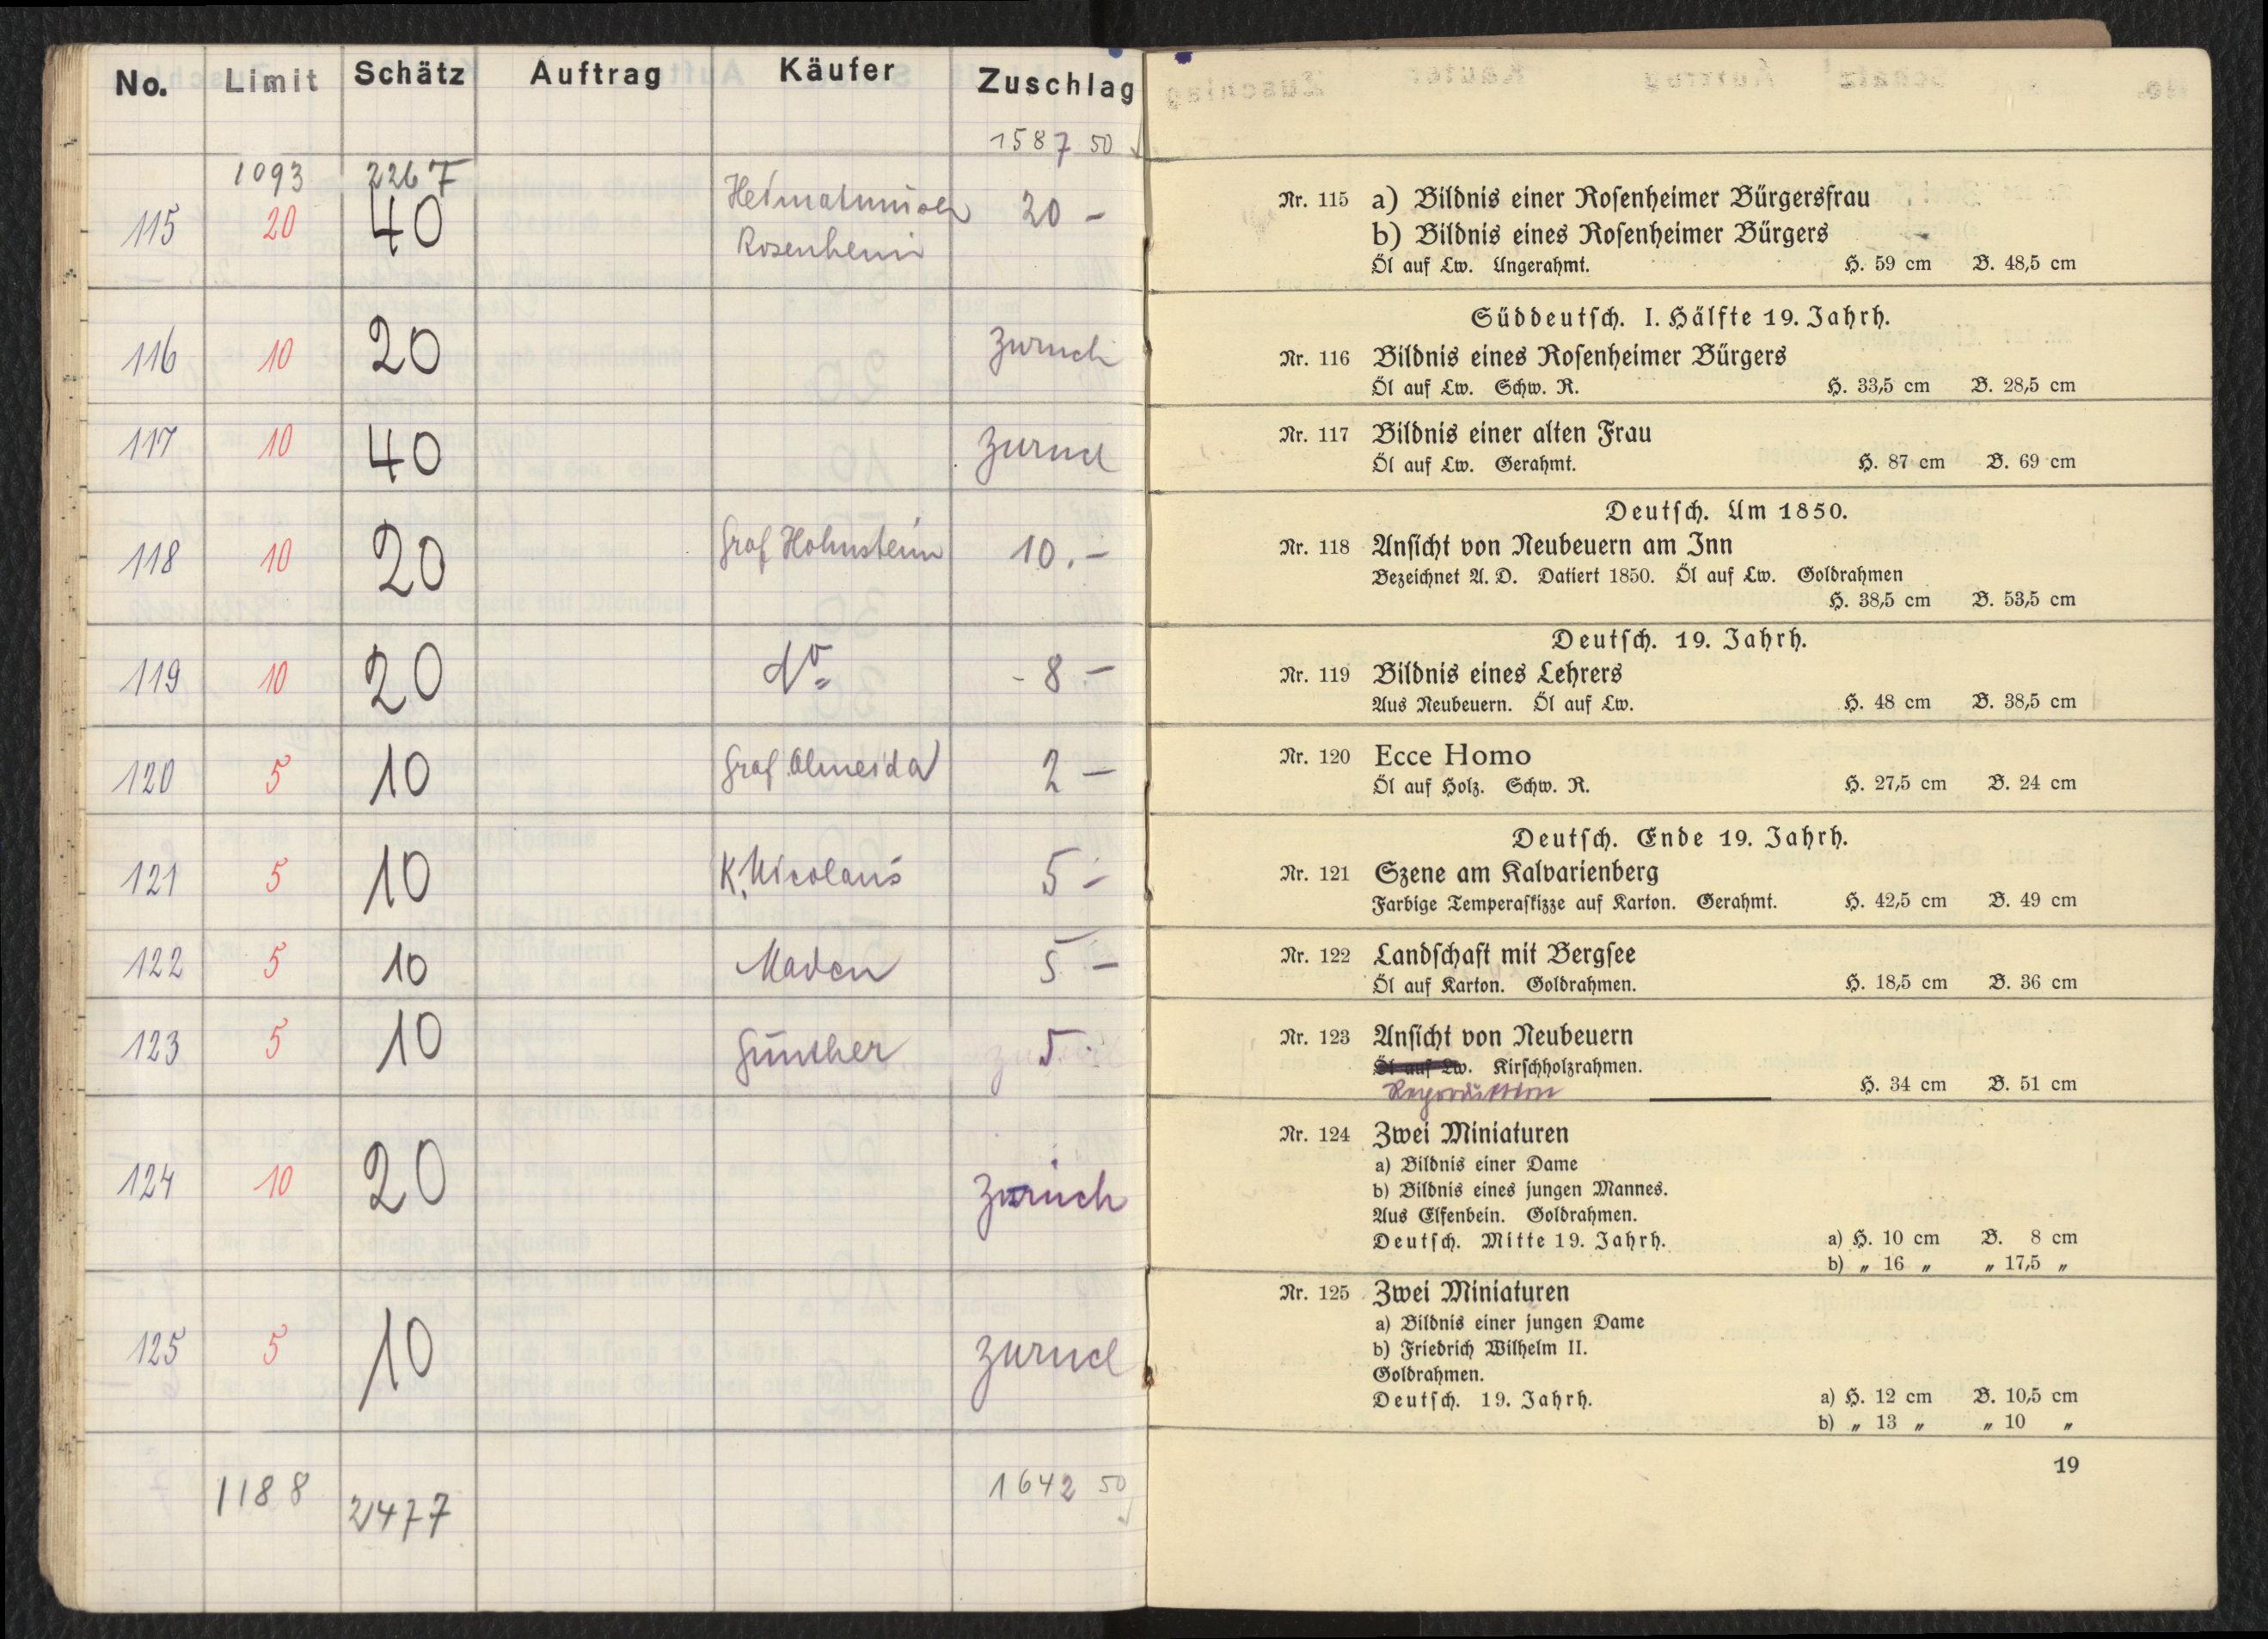 No. Limit Schätz Auftrag Käufer Zuschlag
1587 50
1093 2267
115 20 40 Heimatmuseum Rosenheim 20 -
116 10 20 zurück
117 10 40 zurück
118 10 20 Graf Hohnstein 10.-
119 10 20 - 8 -
120 5 10 Graf Almeida 2 -
121 5 10 K. Nicolaus 5 -
122 5 10 Maden 5 -
123 5 10 Günther 5.
124 10 20 zurück
125 5 10 zurück
1188 2477 1642 50
Nr. 115 a) Bildnis einer Roſenheimer Bürgersfrau
b) Bildnis eines Roſenheimer Bürgers
Öl auf Lw. Ungerahmt. H. 59 cm B. 48,5 cm
Süddeutſch. I. Hälfte 19. Jahrh.
Nr. 116 Bildnis eines Roſenheimer Bürgers
Öl auf Lw. Schw. R. H. 33,5 cm B. 28,5 cm
Nr. 117 Bildnis einer alten Frau
Öl auf Lw. Gerahmt. H. 87 cm B. 69 cm
Deutſch. Um 1850.
Nr. 118 Anſicht von Neubeuern am Inn
Bezeichnet A. D. Datiert 1850. Öl auf Lw. Goldrahmen
H. 38,5 cm B. 53,5 cm
Deutſch. 19. Jahrh.
Nr. 119 Bildnis eines Lehrers
Aus Neubeuern. Öl auf Lw. H. 48 cm B. 38,5 cm
Nr. 120 Ecce Homo
Öl auf Holz. Schw. R. H. 27,5 cm B. 24 cm
Deutſch. Ende 19. Jahrh.
Nr. 121 Szene am Kalvarienberg
Farbige Temperaſkizze auf Karton. Gerahmt. H. 42,5 cm B. 49 cm
Nr. 122 Landſchaft mit Bergſee
Öl auf Karton. Goldrahmen. H. 18,5 cm B. 36 cm
Nr. 123 Anſicht von Neubeuern
Öl auf Lw. Kirſchholzrahmen.
Reproduktion H. 34 cm B. 51 cm
Nr. 124 Zwei Miniaturen
a) Bildnis einer Dame
b) Bildnis eines jungen Mannes.
Aus Elfenbein. Goldrahmen.
Deutſch. Mitte 19. Jahrh. a) H. 10 cm B. 8 cm
b) „ 16 „ „ 17,5 „
Nr. 125 Zwei Miniaturen
a) Bildnis einer jungen Dame
b) Friedrich Wilhelm II.
Goldrahmen.
Deutſch. 19. Jahrh. a) H. 12 cm B. 10,5 cm
b) „ 13 „ „ 10 „
19